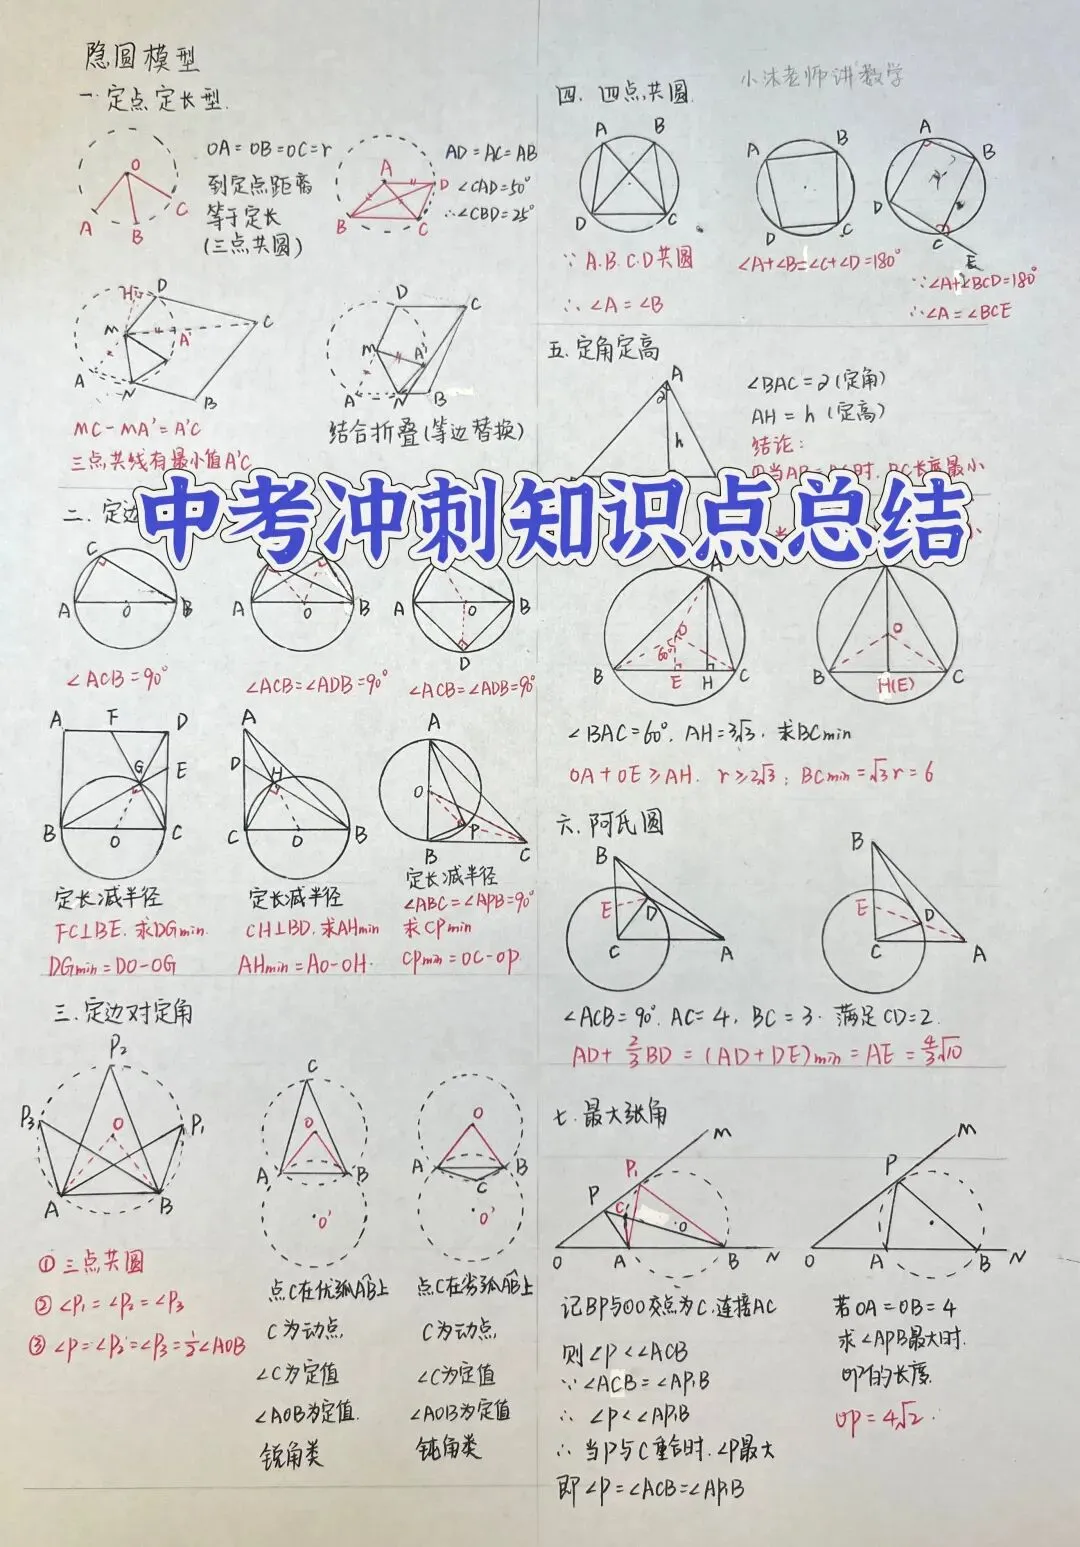 隐圆模型
一.定点定长型.
OA=OB=OC=r
到定点距离
等于定长
(三点共圆)
O
A
B
C
AD=AC=AB
∠CAD=50°
∴∠CBD=25°
A
D
B
C
H
D
M
C
A'
A
N
B
MC-MA'=A'C
三点共线有最小值A'C
D
C
M
A'
A
N
B
结合折叠(等边替换)
中考冲刺知识点总结
二.定边
C
A
O
B
∠ACB=90°
A
O
B
∠ACB=∠ADB=90°
A
O
B
D
∠ACB=∠ADB=90°
A
F
D
G
E
B
O
C
定长减半径
FC⊥BE.求DGmin.
DGmin=DO-OG
A
D
H
C
O
B
定长减半径
CH⊥BD.求AHmin
AHmin=AO-OH.
A
O
P
B
C
定长减半径
∠ABC=∠APB=90°
求CPmin
CPmin=OC-OP.
三.定边对定角
P2
P3
O
P1
A
B
①三点共圆
②∠P1=∠P2=∠P3
③∠P=∠P2=∠P3=1/2∠AOB
C
O
A
B
O'
点C在优弧AB上
C为动点.
∠C为定值
∠AOB为定值.
锐角类
O
A
B
C
O'
点C在劣弧AB上
C为动点.
∠C为定值
∠AOB为定值
钝角类
小沐老师讲数学
四.四点共圆.
A
B
D
C
∵A.B.C.D共圆
∴∠A=∠B
A
B
D
C
∠A+∠B=∠C+∠D=180°
A
B
D
C
E
∵∠A+∠BCD=180°
∴∠A=∠BCE
五.定角定高
A
h
∠BAC=2(定角)
AH=h(定高)
结论:
BC长度最小
A
O
60°
B
E
H
C
O
B
H(E)
C
∠BAC=60°.AH=3√3.求BCmin
OA+OE≥AH.r≥2√3;BCmin=√3r=6
六.阿氏圆
B
E
D
C
A
B
E
D
C
A
∠ACB=90°.AC=4,BC=3.满足CD=2.
AD+2/3BD=(AD+DE)min=AE=4/3√10
七.最大张角
M
P1
P
C
O
O
A
B
N
记BP与⊙O交点为C.连接AC
则∠P<∠ACB
∵∠ACB=∠AP1B
∴∠P<∠AP1B
∴当P与C重合时.∠P最大
即∠P=∠ACB=∠AP1B
M
P
O
A
B
N
若OA=OB=4
求∠APB最大时.
OP的长度.
OP=4√2.